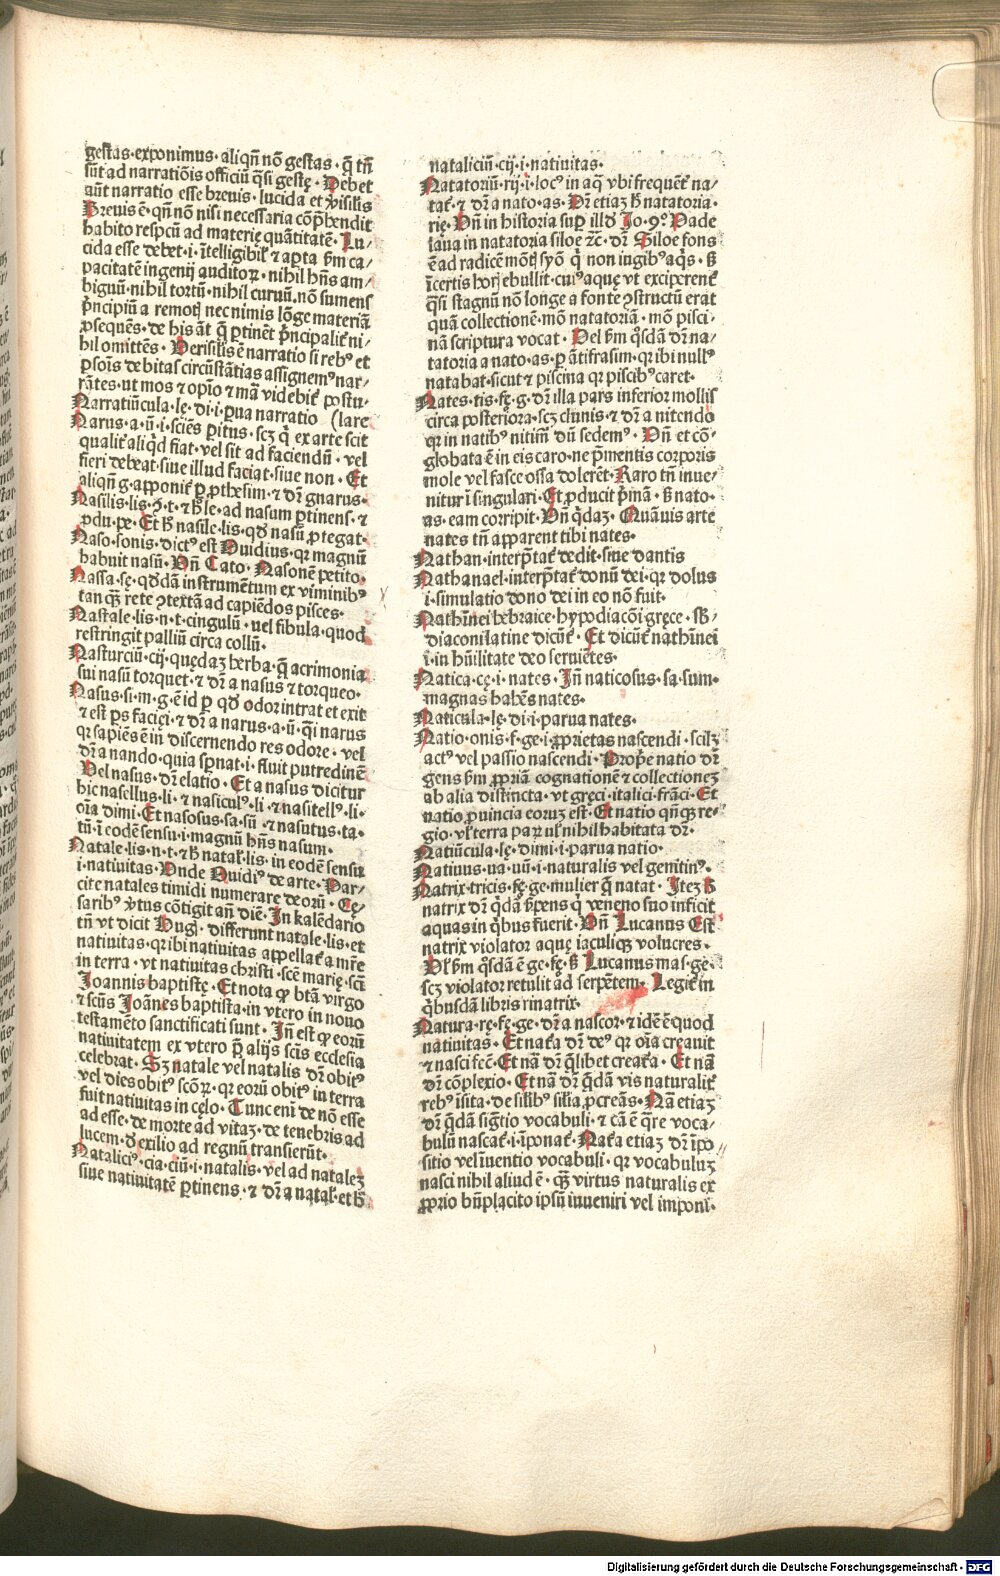 gestas·exponimus·aliqñ nō gestas·q̄ tñ
sūt ad narratiōis officiū q̄si gestę·Debet
aūt narratio esse breuis·lucida et v̓isilis
Breuis ē·qñ nō nisi necessaria cōp̓hendit
habito respcū ad materię quātitatē·Lu/
cida esse debet·i·ītelligibil̕ ⁊ aperta s̄m ca/
pacitatē ingenij auditoꝝ·nihil hñs am/
biguū·nihil tortū·nihil curuū.nō sumens
p̓ncipiū a remotꝭ nec nimis lōge materiā
ꝓsequēs·de his āt q̄ ꝑtinēt p̓ncipalit̕ ni/
hil omittēs·Verisilis ē narratio si rebꝰ et
ꝑsoīs debitas circūstātias assignemꝰ nar/
rātes·ut mos ⁊ opīo ⁊ mā videbit̕ postu/
Narratiūcula·lę·di·i·ꝑua narratio (lare
Narus·a·ū·i·sciēs ꝑitus·scꝫ q̓ ex arte scit
qualit̕ aliq̓d fiat·vel sit ad faciendū·vel
fieri debeat·siue illud faciat·siue non·Et
aliqñ g·apponit̕ ꝑ ꝓthesim·⁊ dr̄ gnarus·
Nasilis·lis·ꝯ·t·⁊ h̄ le·ad nasum ꝑtinens·⁊
ꝓdu·pe·Et h̄ nasile·lis·qd̓ nasū ꝓtegat·
Naso·sonis·dictꝰ est Ouidius·qꝛ magnū
habuit nasū·Vñ Cato·Nasonē petito·
Nassa·sę·qd̓dā instrumētum ex viminibꝰ
tanꝙꝫ rete ꝯtextā ad capiēdos pisces·
Nastale·lis·n·t·cingulū·vel fibula·quod
restringit palliū circa collū·
Nasturciū·cij·quędaꝫ herba·q̄ acrimonia
sui nasū torquet·⁊ dr̄ a nasus ⁊ torqueo·
Nasus·si·m·g·ē id ꝑ qd̓ odor intrat et exit
⁊ est ꝑs faciei·⁊ dr̄ a narus·a·ū·qi narus
qꝛ sapiēs ē in discernendo res odore·vel
dr̄ a nando·quia suꝑnat·i·fluit putredinē
Vel nasus·dr̄ elatio·Et a nasus dicitur
hic nasellus·li·⁊ nasiculꝰ·li·⁊ nasitellꝰ·li·
oīa dimi·Et nasosus·sa·sū·⁊ nasutus·ta·
tū·ī eodē sensu·i·magnū hñs nasum·
Natale·lis·n·t·⁊ h̄ natal̕·lis·in eodē sensu
i·natiuitas·Unde Ouidiꝰ de arte·Par/
cite natales timidi numerare deoꝝ·Cę/
saribꝰ v̓tus cōtigit añ diē·In kalēdario
tñ vt dicit Hug̓·differunt natale·lis·et
natiuitas·qꝛ ibi natiuitas appellat̕ a mr̄e
in terra·vt natiuitas christi·scē marię·scī
Joannis baptistę·Et nota ꝙ btā virgo
⁊ scūs Joānes baptista·in vtero in nouo
testamēto sanctificati sunt·Iñ est ꝙ eorū
natiuitatem ex vtero p̄ alijs scīs ecclesia
celebrat·Sꝫ natale vel natalis dr̄ obitꝰ
vel dies obitꝰ scōꝝ·qꝛ eorū obitꝰ in terra
fuit natiuitas in cęlo·Tunc eni̅ de nō esse
ad esse·de morte ad vitaꝫ·de tenebris ad
lucem·d̓ exilio ad regnū transierūt·
Nataliciꝰ·cia·ciū·i·natalis·vel ad nataleꝫ
siue natiuitatē ꝑtinens·⁊ dr̄ a natal̕·et h̄
nataliciū·cij·i·natiuitas·
Natatoriū·rij·i·locꝰ in aq̄ vbi frequēt̕ na/
tat̕·⁊ dr̄ a nato·as·Dr̄ etiaꝫ h̄ natatoria·
rię·Vñ in historia suꝑ illd̓ Jo·9ͦ·Uade
laua in natatoria siloe ⁊c̄·dr̄ Siloe fons
ē ad radicē mōtꝭ syō q̓ non iugibꝰ aq̄s·s̓
īcertis horꝭ ebullit·cuiꝰ aquę vt exciperent̕
q̄si stagnū nō longe a fonte ꝯstructū erat
quā collectionē·mō natatoriā·mō pisci/
nā scriptura vocat·Vel s̄m q̄sdā dr̄ na/
tatoria a nato·as·ꝑ ātifrasim·qꝛ ibi nullꝰ
natabat·sicut ⁊ piscina qꝛ piscibꝰ caret·
Nates·tis·fę·g·dr̄ illa pars inferior mollis
circa posteriora·scꝫ clunis·⁊ dr̄ a nitendo
qꝛ in natibꝰ nitim̄ dū sedemꝰ·Vñ et cō/
globata ē in eis caro·ne p̓mentis corporis
mole vel fasce ossa dolerēt·Raro tñ inue/
nitur ī singulari·Et ꝓducit p̓mā·s̓ nato·
as·eam corripit·Vñ q̓daꝫ·Quāuis arte
nates tñ apparent tibi nates·
Nathan·interp̓tat̕ dedit·siue dantis
Nathanael·interp̓tat̕ donū dei·qꝛ dolus
i·simulatio dono dei in eo nō fuit·
Nathīnei hebraice·hypodiacōi gręce·sb̓/
diaconi latine dicūt̕·Et dicūt̕ nathīnei
i·in hūilitate deo seruiētes·
Natica·cę·i·nates·Iñ naticosus·sa·sum·
magnas habēs nates·
Naticula·lę·di·i·parua nates·
Natio·onis·f·ge·i·ꝓprietas nascendi·scilꝫ
actꝰ vel passio nascendi·Prop̓e natio dr̄
gens s̄m ꝓpriā cognationē ⁊ collectioneꝫ
ab alia distincta·vt gręci·italici·frāci·Et
natio ꝓuincia eoruꝫ est·Et natio qñꝙꝫ re/
gio·vl̕ terra paꝝ ul̕ nihil habitata dr̄·
Natiūcula·lę·dimi·i·parua natio·
Natiuus·ua·uū·i·naturalis vel genitiuꝰ·
Natrix·tricis·fę·ge·mulier q̄ natat·Iteꝫ h̄
natrix dr̄ q̄dā s̓pens q̄ veneno suo inficit
aquas in q̓bus fuerit·Vñ Lucanus Est
natrix violator aquę iaculiqꝫ volucres·
Vl̕ s̄m q̄sdā ē ge·fę·s̓ Lucanus mas·ge·
scꝫ violator retulit ad serpētem·Legit̕ in
q̓busdā libris rinatrix·
Natura·rę·fę·ge·dr̄ a nascor·⁊ idē ē quod
natiuitas·Et nat̕a dr̄ deꝰ qꝛ oīa creauit
⁊ nasci fec̄·Et nā dr̄ q̄libet creat̕a·Et nā
dr̄ cōplexio·Et nā dr̄ q̄dā vis naturalit̕
rebꝰ īsita·de silibꝰ silia ꝓcreās·Nā etiaꝫ
dr̄ q̄dā sigtio vocabuli·⁊ cā ē q̄re voca/
bulū nascat̕·i·īponat̕·Nat̕a etiaꝫ dr̄ īpo/
sitio vel īuentio vocabuli·qꝛ vocabuluꝫ
nasci nihil aliud ē·ꝙꝫ virtus naturalis ex
ꝓprio bñplacito ipsū inueniri vel imponi·
Digitalisierung gefördert durch die Deutsche Forschungsgemeinschaft - DFG